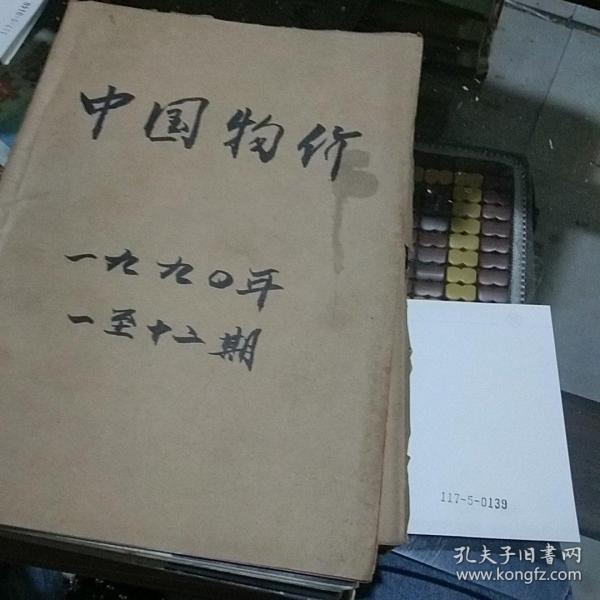 中国物价
一九九〇年
一至十二期
117-5-0139
孔夫子旧書网
www.kongfz.com